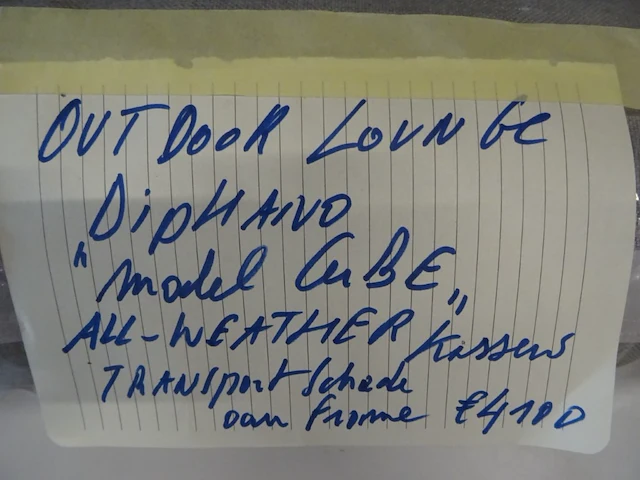 OUTDOOR LOUNGE
DIPHANO
"model CUBE"
ALL-WEATHER Kussens
TRANSport Schade
aan Frame €4180